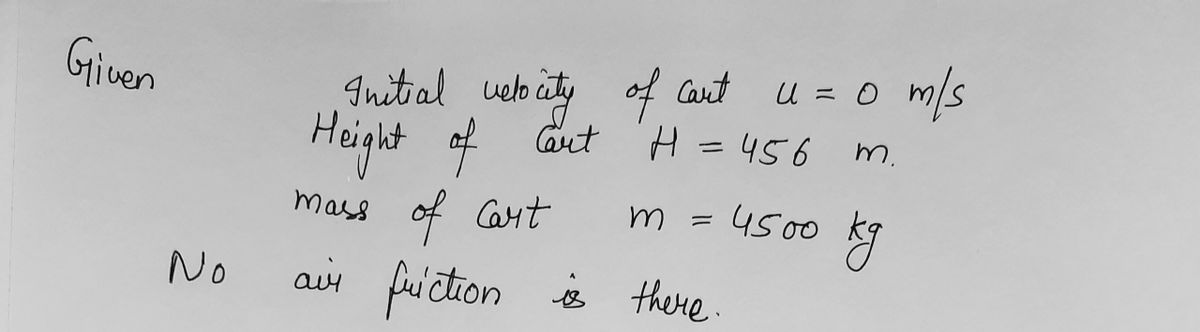 Given
Initial velocity of cart u = 0 m/s
Height of Cart H = 456 m.
mass of Cart m = 4500 kg
No air friction is there.